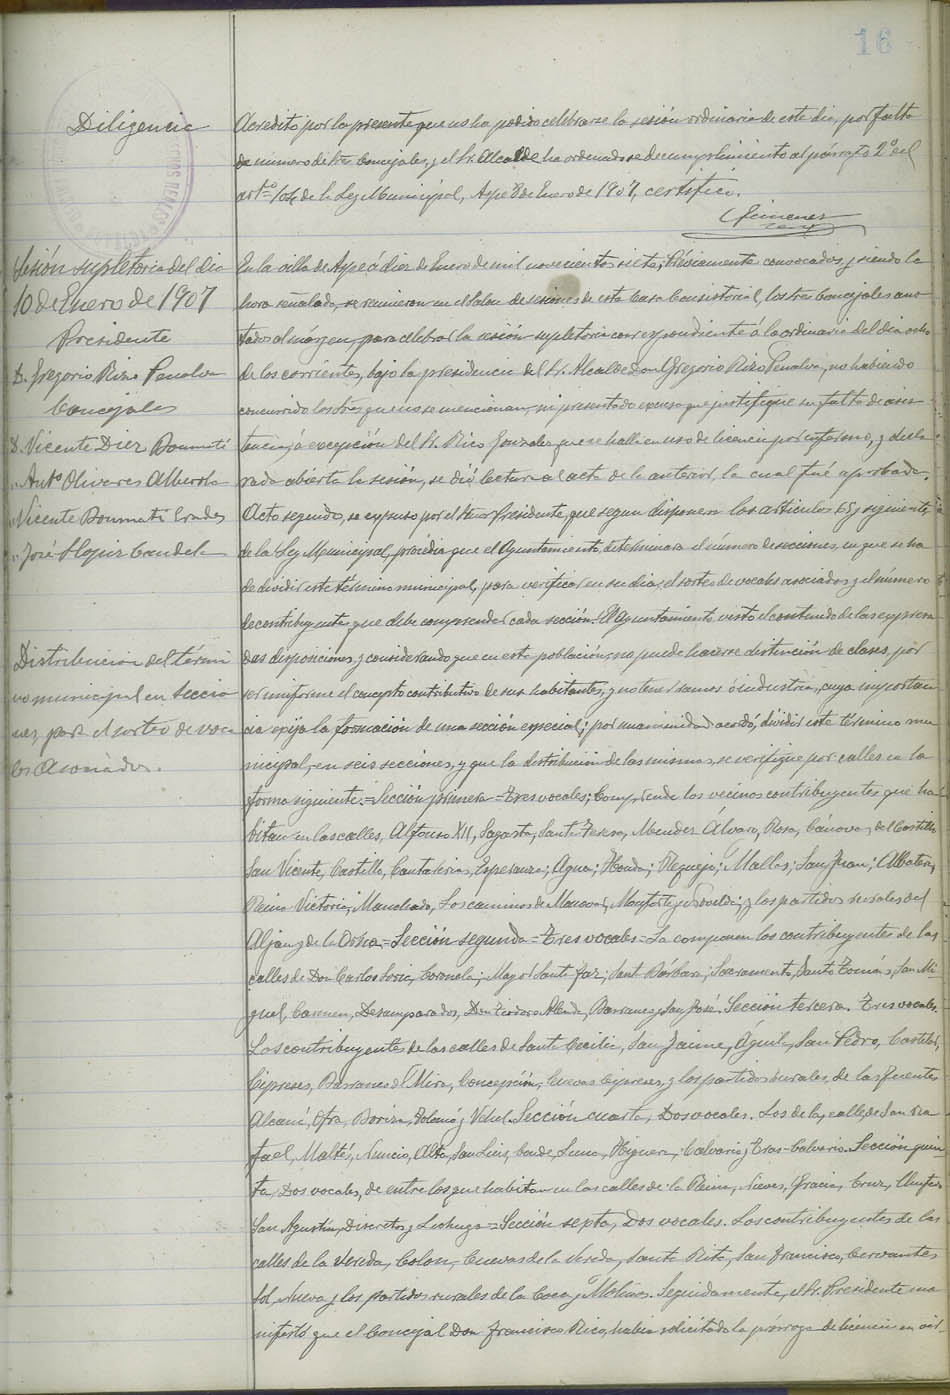 16
Diligencia
Acredito por la presente que no ha podido celebrarse la sesión ordinaria de este dia, por falta
de número de Sres Concejales, y el Sr. Alcalde ha ordenado se de cumplimiento al párrafo 2º del
artº 104 de la Ley Municipal, Aspe 8 de Enero de 1907, certifico.
Gimenez
Sesión supletoria del dia
10 de Enero de 1907
Presidente
D. Gregorio Rizo Penalva
Concejales
D. Vicente Diez Boumatí
" Antº Olivares Alberola
" Vicente Boumatí
" José Llopis Candela
En la villa de Aspe á diez de Enero de mil novecientos siete; Préviamente convocados, y siendo la
hora señalada, se reunieron en el Salon de sesiones de esta Casa Consistorial, los tres Concejales ano-
tados al márgen, para celebrar la sesión supletoria correspondiente á la ordinaria del dia ocho
de los corrientes, bajo la presidencia del Sr. Alcalde Don Gregorio Rizo Penalva, no habiendo
concurrido los demás que no se mencionan, ni presentado excusa que justifique su falta de asis-
tencia, á excepción del Sr. Rico Gonzalez que se halla en uso de licencia por enfermo, y decla-
rada abierta la sesión, se dió lectura al acta de la anterior, la cual fué aprobada.
Acto seguido, se expuso por el Señor Presidente, que segun disponen los articulos 65 y siguientes,
de la Ley Municipal, procedia que el Ayuntamiento, determinara el número de secciones, en que se ha
de dividir este término municipal, para verificar en su dia, el sorteo de vocales asociados y el número
de contribuyentes que debe comprender cada sección. El Ayuntamiento, visto el contenido de las expresa-
das disposiciones, y considerando que en esta población, no puede hacerse distinción de clases, por
ser uniforme el concepto contributivo de sus habitantes, y no tener ramos ó industria, cuya importan-
cia exija la formación de una sección especial; por unanimidad acordó, dividir este término mu-
nicipal, en seis secciones, y que la distribución de las mismas, se verifique por calles en la
Distribucion del térmi
no municipal en Seccio
nes, para el sorteo de voca
les Asociados.
forma siguiente.=Sección primera=Tres vocales; Comprende los vecinos contribuyentes que ha-
bitan en las calles, Alfonso XII, Sagasta, Santa Teresa, Mendez Álvaro, Rosa, Cánovas del Castillo,
San Vicente, Castillo, Cantarerias, Esperanza; Agua; Honda; Requejo; Mallas; San Juan; Albatera,
Reina Victoria, Manchado, Los caminos de Monovar, Monforte y Novelda; y los partidos rurales del
Aljau y de la Ofra.=Sección segunda=Tres vocales=La componen los contribuyentes de las
calles de Don Carlos Soria, Coronela; Mayor Santa faz; Santa Bárbara; Sacramento, Santo Tomás, San Mi-
guel, Carmen, Desamparados, Don Teodoro Alenda, Barranco y San José. Sección tercera. Tres vocales.
Los contribuyentes de las calles de Santa Cecilia, San Jaime, Águila, San Pedro, Castelar,
Cipreses, Barranco de Mira, Concepción, Cuevas Cipreses, y los partidos rurales, de las fuentes
Alcaná, Ofra, Borisa, Tolomó y Uchel. Sección cuarta, Dos vocales. Los de la, calle, de San Ra-
fael, Maltés, Nuncio, Alta, San Luis, Conde, Luna, Higuera, Calvario y Eras-Calvario. Sección quin-
ta, Dos vocales, de entre los que habitan en las calles de la Reina, Nieves, Gracia, Cruz,
San Agustin, Discretos y Lechuga=Sección septa, Dos vocales. Los contribuyentes de las
calles de la Vereda, Colon, Cuevas de la Vereda, Santa Rita, San Francisco, Cervantes
Sol, Nueva y los partidos rurales de la Coca y Molinos. Seguidamente, el Sr. Presidente ma-
nifestó que el Concejal Don Francisco Rico, habia solicitado la prórroga de licencia en vir-